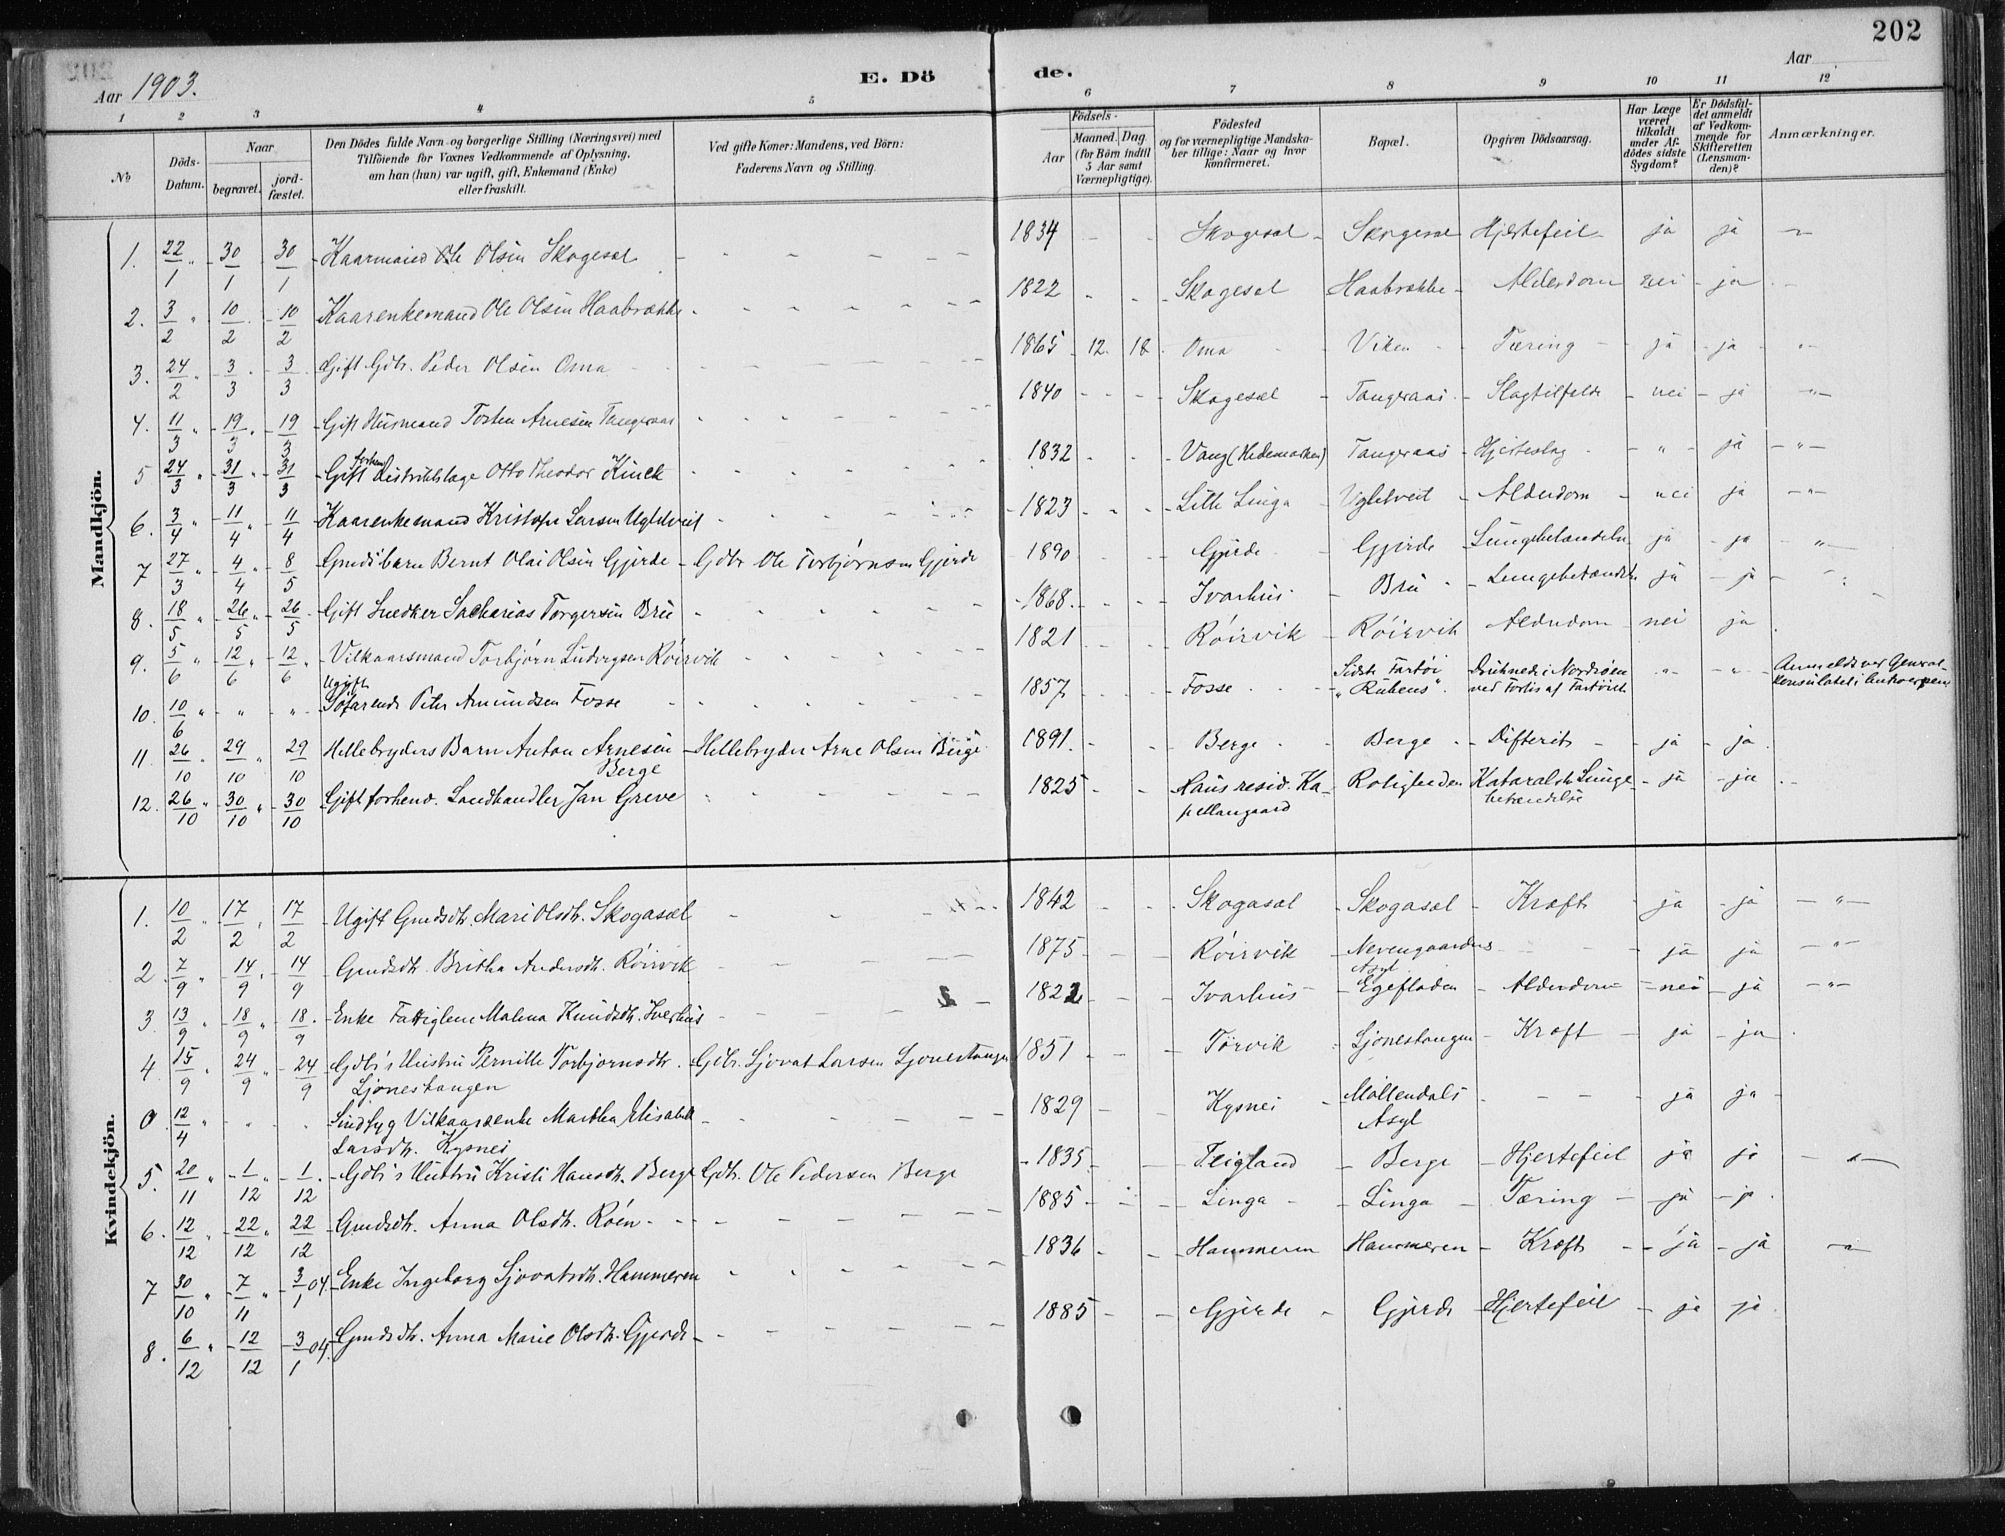 202
Aar 1903.
E. Dö de.
Aar
1 2 3 4 5 6 7 8 9 10 11 12
No
Döds-Datum.
Naar
begravet.
jord-fæstet.
Den Dödes fulde Navn og borgerlige Stilling (Næringsvei) med
Tilföiende for Voxnes Vedkommende af Oplysning,
om han (hun) var ugift, gift, Enkemand (Enke)
eller fraskilt.
Ved gifte Koner: Mandens, ved Börn:
Faderens Navn og Stilling.
Födsels-
Aar
Maaned. Dag
(for Börn indtil
5 Aar samt
Værnepligtige).
Födested
og for værnepligtige Mandska-
ber tillige: Naar og hvor
konfirmeret.
Bopæl.
Opgiven Dödsaarsag.
Har Læge
været
tilkaldt
under Af-
dödes sidste
Sygdom?
Er Dödsfal-
det anmeldt
af Vedkom-
mende for
Skifteretten
(Lensman-
den)?
Anmærkninger.
Mandkjön.
1. 22/1 " 30/1 30/1 Kaarmand Ole Olsen Skogesæl - 1834 - - Skogesæl - Skogesæl Hjertefeil - ja ja "
2. 3/2 " 10/2 10/2 Kaarenkemand Ole Olsen Haabrække - 1822 - - Skogesæl Haabrække - Alderdom nei - ja -
3. 24/2 " 3/3 3/3 Gift Gdbr. Peder Olsen Oma - 1865 12. 18. Oma - Viken - Tæring - ja - ja "
4. 11/3 " 19/3 19/3 Gift Husmand Tosten Arnesen Tangeraas - 1840 - - Skogesæl - Tangeraas - Slagtilfelde - nei - ja "
5 24/3 " 31/3 31/3 Gift forhenv. Distriktslæge Otto Theodor Kinck - 1832 - - Vang (Hedemarken) Tangeraas - Hjerteslag - " - ja - " -
6. 3/4 " 11/4 11/4 Kaarenkemand Kristofer Larsen Ugletveit - 1823 - - Litle Linga - Ugletveit - Alderdom - nei ja - " -
7 27/3 " 4/4 8/5 Gmdsbarn Bernt Olai Olsen Gjerde - Gdbr Ole Torbjørnsen Gjerde 1890 - - Gjerde - Gjerde Lungebetændelse ja - ja - "
8. 18/5 " 26/5 26/5 Gift Snedker Sacharias Torgersen Bru - 1868. - - Ivarhus - Bru - Lungebetændelse ja - ja
9. 5/6 " 12/6 12/6 Vilkaarsmand Torbjørn Ludvigsen Röirvik - 1821 - - Röirvik - Röirvik Alderdom nei ja
10. 10/6 " " " Ugift Söfarende Peter Amundsen Fosse - 1857 - - Fosse - Sidste Fartöi „Rubens" Druknede i Nordsöen ved Forlis af Fartöiet " " Anmeldt ved General-konsulatet i Antwerpen
11. 26/10 " 29/10 29/10 Hellebryders Barn Anton Arnesen Berge - Hellebryder Arne Olsen Berge 1891. - - Berge - Berge - Difterit - ja - ja.
12. 26/10 " 30/10 30/10 Gift forhenv. Landhandler Jan Greve - 1825 - - Haus resid. Ka-pellangaard Roligheden Kataralsk Lunge-betændelse - ja - ja -
Kvindekjön.
1. 10/2 " 17/2 17/2 Ugift Gmdsdtr. Mari Olsdtr. Skogasæl - 1842 - - Skogasæl - Skogasæl - Kræft - ja - ja - " -
2. 7/9 " 14/9 14/9 Gmdsdtr. Britha Andersdtr. Röirvik - 1875 - - Röirvik - Nevengaardens Asyl - ja ja - " -
3. 13/9 " 18/9 18/9 Enke Fattiglem Malena Knudsdtr. Iverhus - 1822 - - Ivarhus - Egefladen - Alderdom - nei - ja - " -
4. 15/9 " 24/9 24/9 Gdbr's Hustru Pernille Torbjørnsdtr. Ljonestangen - Gdbr. Sjovat Larsen Ljonestangen 1851 - - Törvik - Ljonestangen - Kræft - ja - ja
0 12/4 " " Sindsyg Vilkaarsenke Martha Elisabet Larsdtr. Kysnei - 1829 - - Kysnei - Möllendals Asyl - ja ja -
5. 20/11 - 1/12 - 1/12 Gdbr's Hustru Kristi Hansdtr. Berge Gdbr. Ole Pedersen Berge - 1835 - - Teigland - Berge - Hjertefeil ja ja - " -
6. 12/12 " 22/12 22/12 Gmdsdtr. Anna Olsdtr. Roén - 1885 - - Linga - Linga - Tæring - ja - ja.
7 30/10 " 7/11 3/1 04. Enke Ingeborg Sjovatsdtr. Hammeren - 1836 - - Hammeren Hammeren - Kræft - ja - ja "
8. 6/12 " 12/12 3/1 04. Gmdsdtr. Anna Marie Olsdtr. Gjerde - 1885 - - Gjerde - Gjerde Hjertefeil - ja ja.